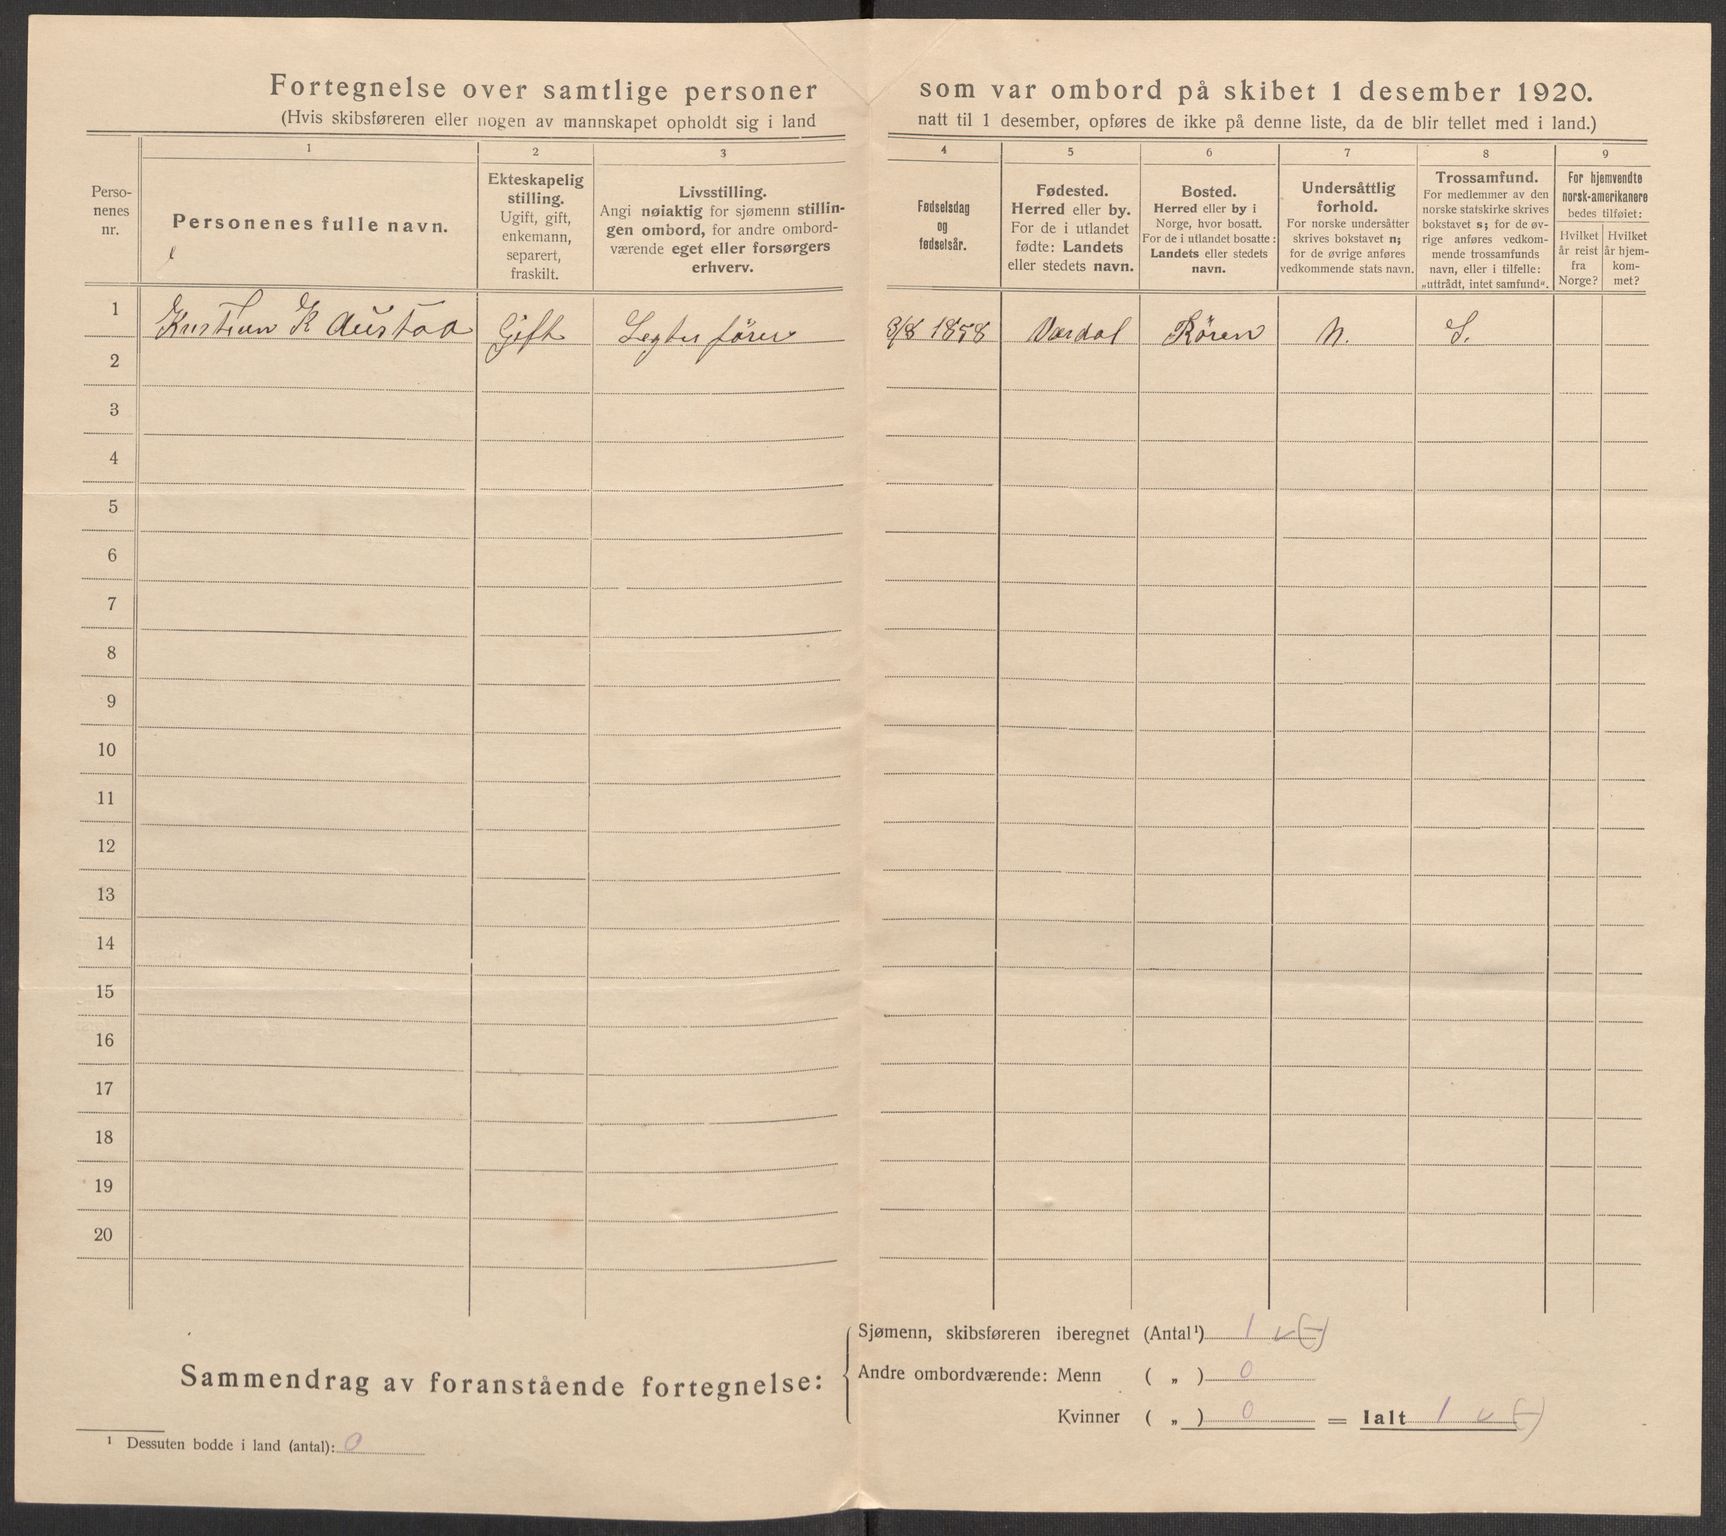 Fortegnelse over samtlige personer som var ombord på skibet 1 desember 1920.
(Hvis skibsføreren eller nogen av mannskapet opholdt sig i land natt til 1 desember, opføres de ikke på denne liste, da de blir tellet med i land.)
Perso-
nenes
nr.
1
Personenes fulle navn.
2
Ekteskapelig
stilling.
Ugift, gift,
enkemann,
separert,
fraskilt.
3
Livsstilling.
Angi nøiaktig for sjømenn stillin-
gen ombord, for andre ombord-
værende eget eller forsørgers
erhverv.
4
Fødselsdag
og
fødselsår.
5
Fødested.
Herred eller by.
For de i utlandet
fødte: Landets
eller stedets navn.
6
Bosted.
Herred eller by i
Norge, hvor bosatt.
For de i utlandet bosatte:
Landets eller stedets
navn.
7
Undersåttlig
forhold.
For norske undersåtter
skrives bokstavet n;
for de øvrige anføres
vedkommende stats navn.
8
Trossamfund.
For medlemmer av den
norske statskirke skrives
bokstavet s; for de øv-
rige anføres vedkom-
mende trossamfunds
navn, eller i tilfelle:
„uttrådt, intet samfund“.
9
For hjemvendte
norsk-amerikanere
bedes tilføiet:
Hvilket
år reist
fra
Norge?
Hvilket
år hjem-
kom-
met?
1 Kristian K Austad Gift Legter fører 3/8 1858 Værdal Røren N. S.
2
3
4
5
6
7
8
9
10
11
12
13
14
15
16
17
18
19
20
Sammendrag av foranstående fortegnelse:
Sjømenn, skibsføreren iberegnet (Antal¹) 1 v (-)
Andre ombordværende: Menn ( „ ) 0
Kvinner ( „ ) 0 = Ialt 1 v (-)
¹ Dessuten bodde i land (antal): 0